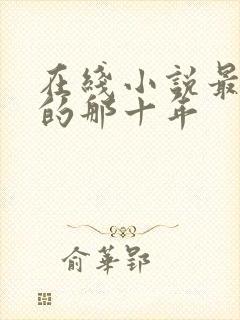 在綫小說最
的那十年
俞華郢